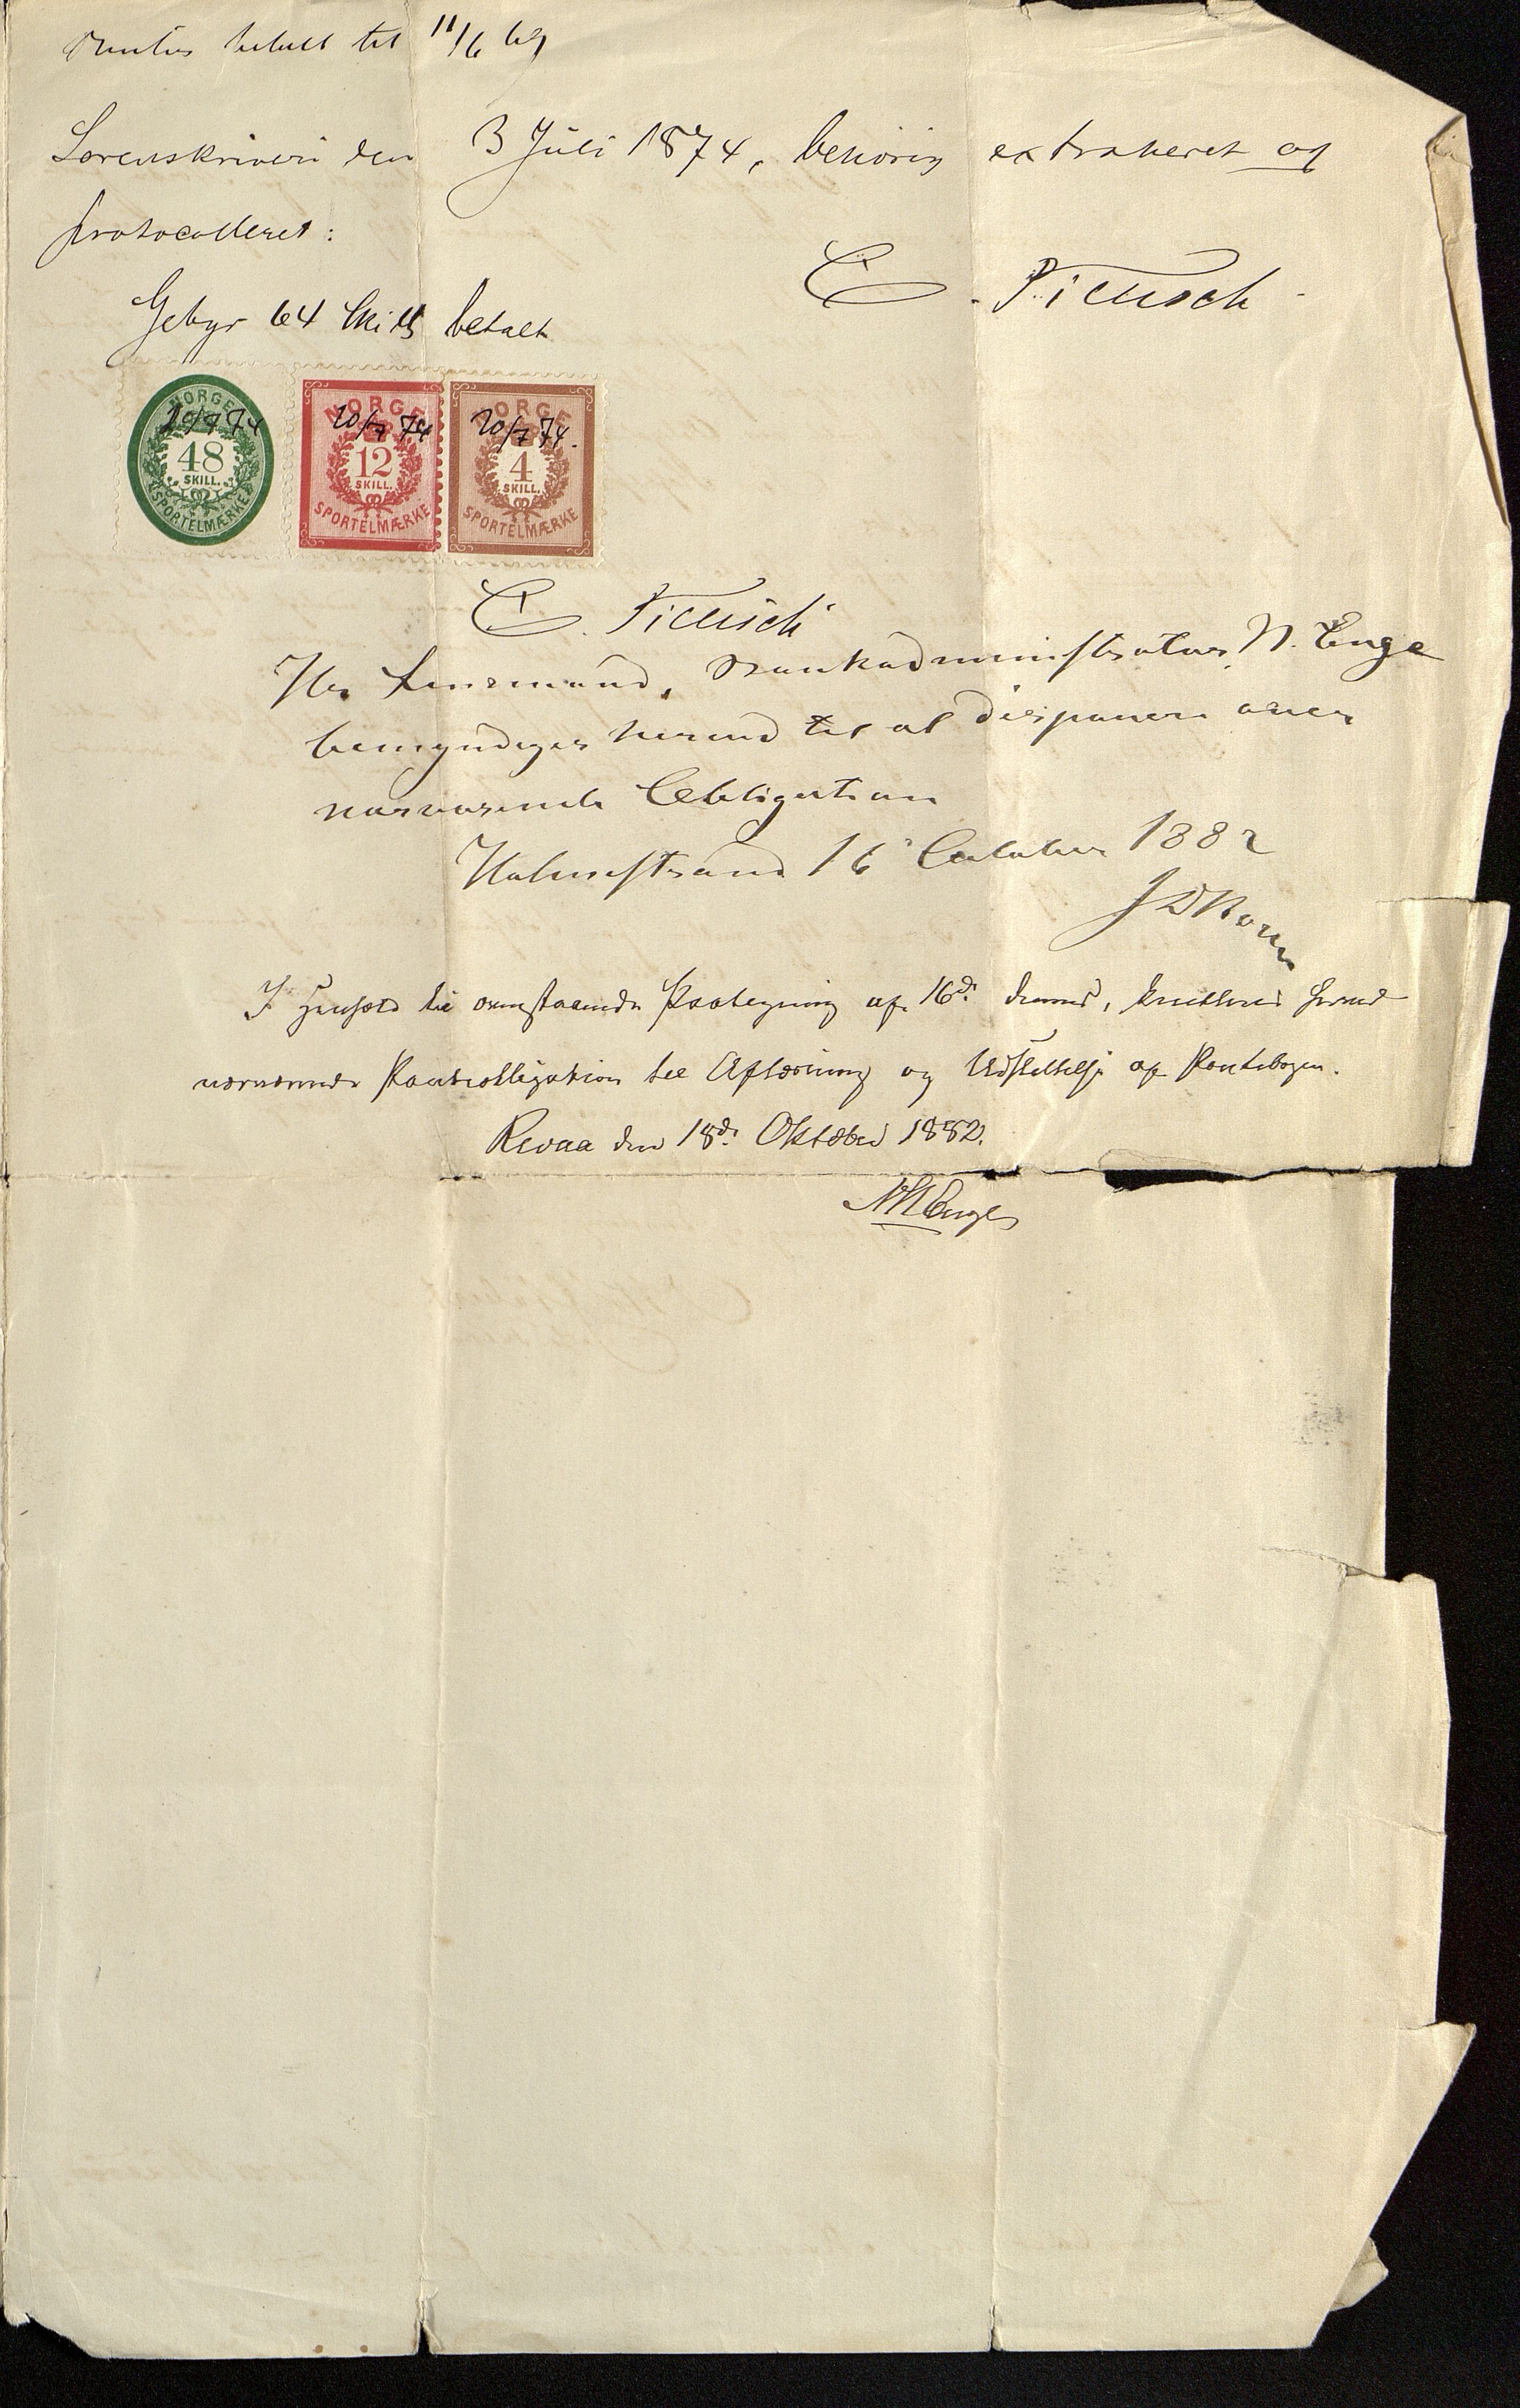 Renter betalt til 11/6 69
Sorenskriveri den 3 Juli 1874, behörig extraheret og
protocolleret:
C. Pillisch
Gebyr 64 Skill betalt
NORGE 48 SKILL. SPORTELMÆRKE 20/7 74
NORGE 12 SKILL. SPORTELMÆRKE 20/7 74
NORGE 4 SKILL. SPORTELMÆRKE 20/7 74.
C. Pillisch
Hr. Lensmand, Bankadministrator N. Enge
bemyndiges herved til at disponere over
nærværende Obligation
Holmestrand 16 October 1882
I Henhold til ovenstaaende Paategning af 16d. dennes, kvitteres herved
nærværende Panteobligation til Aflæsning og Udslettelse af Pantebogen.
Revaa den 18d. Oktober 1882.
NNEnge